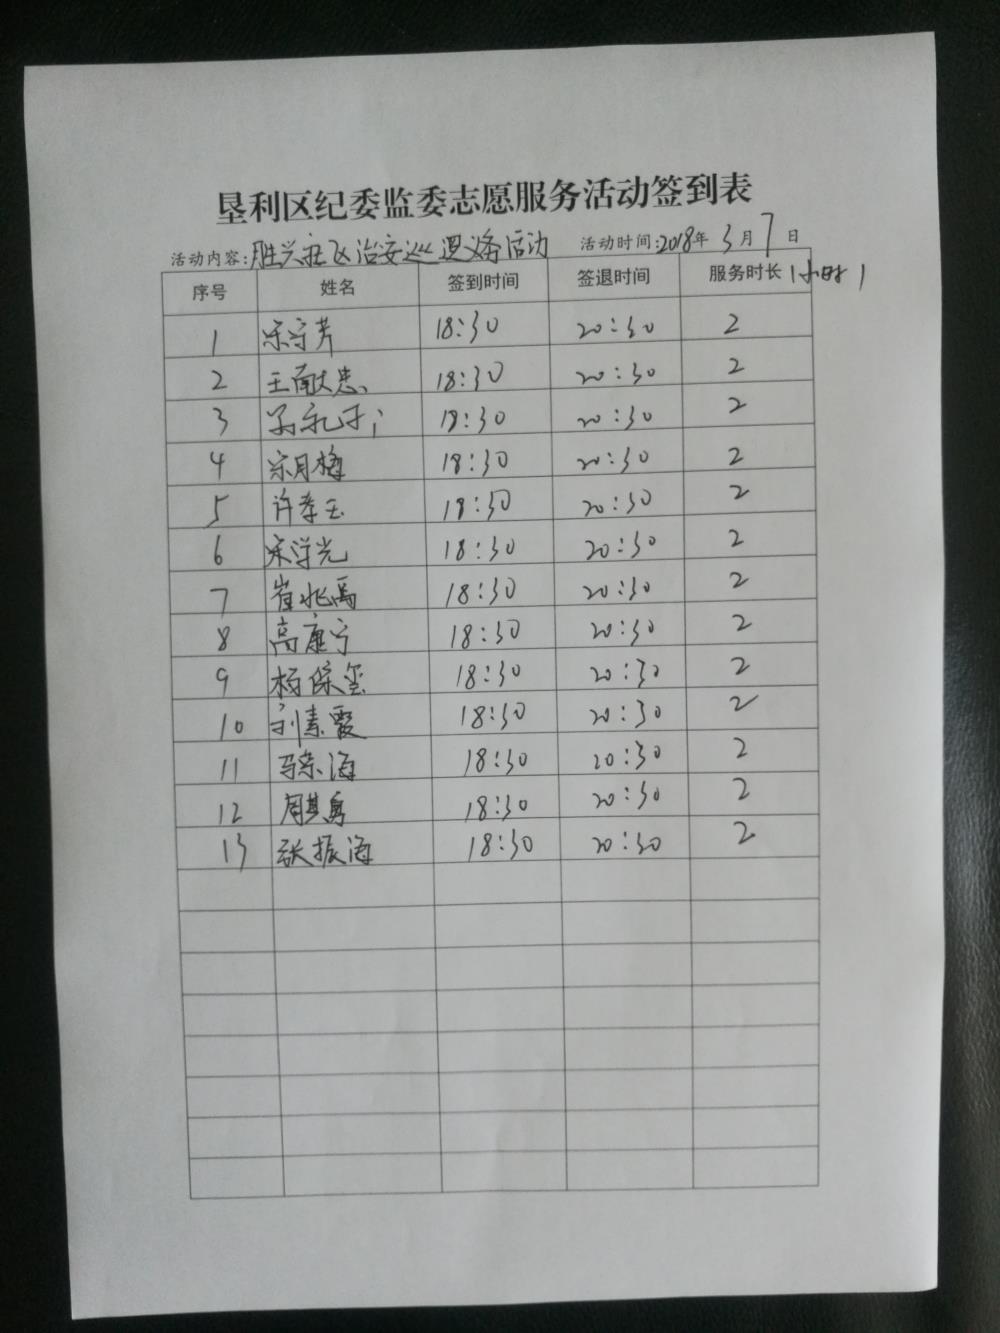 垦利区纪委监委志愿服务活动签到表
活动内容:胜兴社区治安巡逻义务活动 活动时间:2018年3月7日
序号 姓名 签到时间 签退时间 服务时长(小时)
1 宋守芳 18:30 20:30 2
2 王献忠 18:30 20:30 2
3 18:30 20:30 2
4 宋月梅 18:30 20:30 2
5 许孝玉 18:30 20:30 2
6 宋学光 18:30 20:30 2
7 崔兆禹 18:30 20:30 2
8 高康宁 18:30 20:30 2
9 杨保玺 18:30 20:30 2
10 刘素霞 18:30 20:30 2
11 马东海 18:30 20:30 2
12 周其勇 18:30 20:30 2
13 张振海 18:30 20:30 2